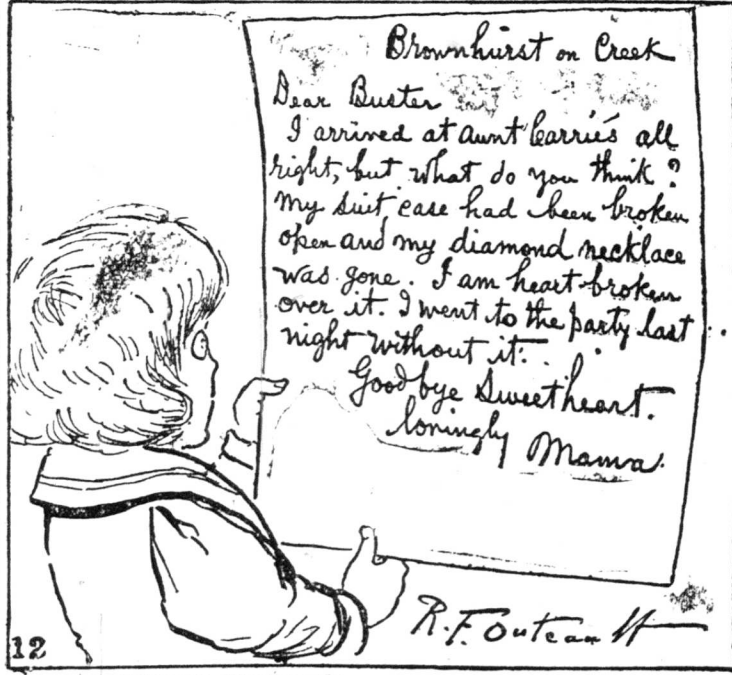 Brownhurst on Creek
Dear Buster
I arrived at aunt Carrie's all
right, but what do you think?
My suit case had been broken
open and my diamond necklace
was gone. I am heart broken
over it. I went to the party last
night without it.
Good bye Sweetheart.
lovingly Mama.
R.F. Outcault
12